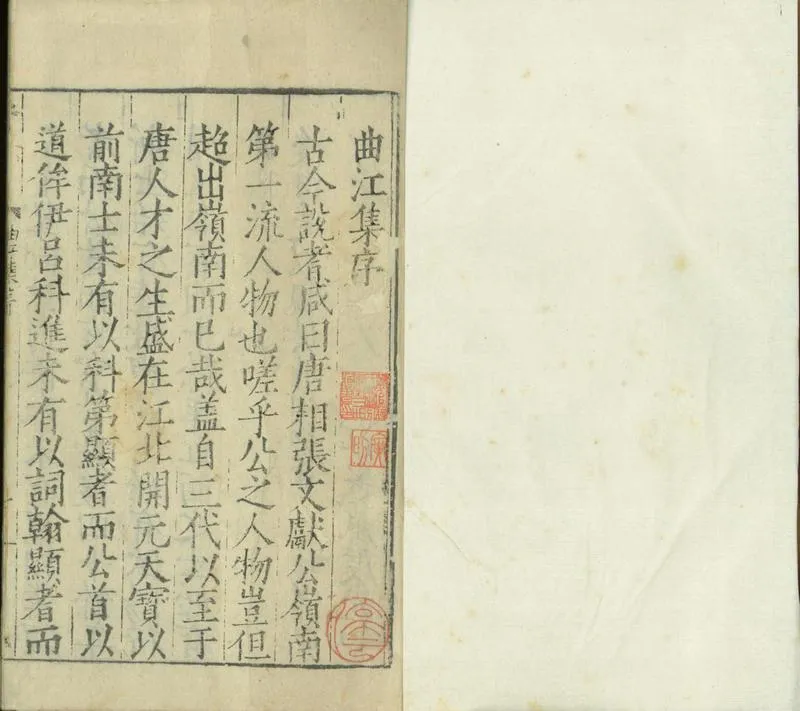 曲江集序
古今説者咸曰唐相張文獻公嶺南
第一流人物也嗟乎公之人物豈但
超出嶺南而已哉盖自三代以至于
唐人才之生盛在江北開元天寶以
前南士未有以科第顯者而公首以
道侔伊呂科進未有以詞翰顯者而
曲江集序